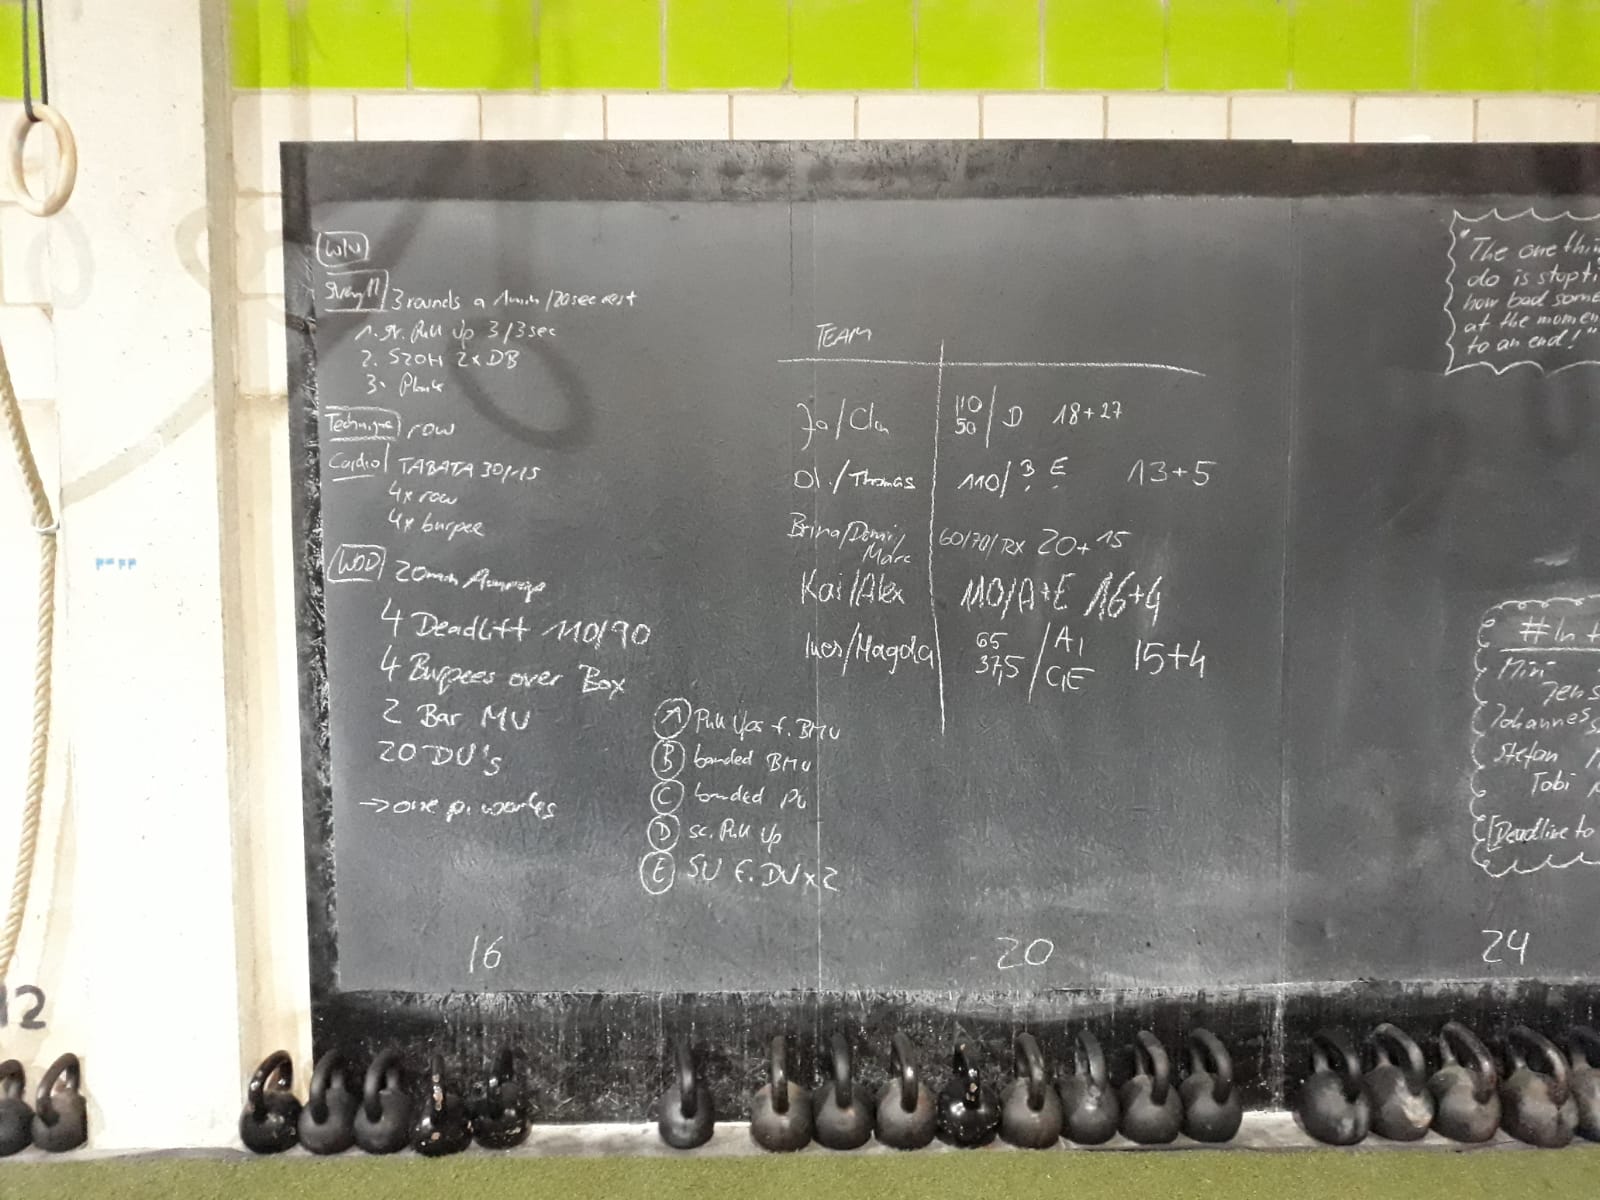 W/U
Strength 3 rounds a 1min/20sec rest
1. str. Pull Up 3/3sec
2. S2OH 2xDB
3. Plank
Technique row
Cardio TABATA 30/15
4x row
4x burpee
WOD 20min Amrap
4 Deadlift 110/90
4 Burpees over Box
2 Bar MU
20 DU's
→ one p. works
A Pull Ups f. BMU
B banded BMU
C banded PU
D sc. Pull Up
E SU f. DU x2
TEAM
Ja/Clu 110 50 / D 18+27
Ol./Thomas 110/B, E 13+5
Brina/Domi/
Marc 60/70/RX 20+15
Kai/Alex 110/A+E 16+4
Ines/Magda 65 37,5 / A, C,E 15+4
"The one thin
do is stop
how bad some
at the momen
to an end!"
#In
Mini
Jens
Johannes
Stefan
Tobi
[Deadline to
16
20
24
12